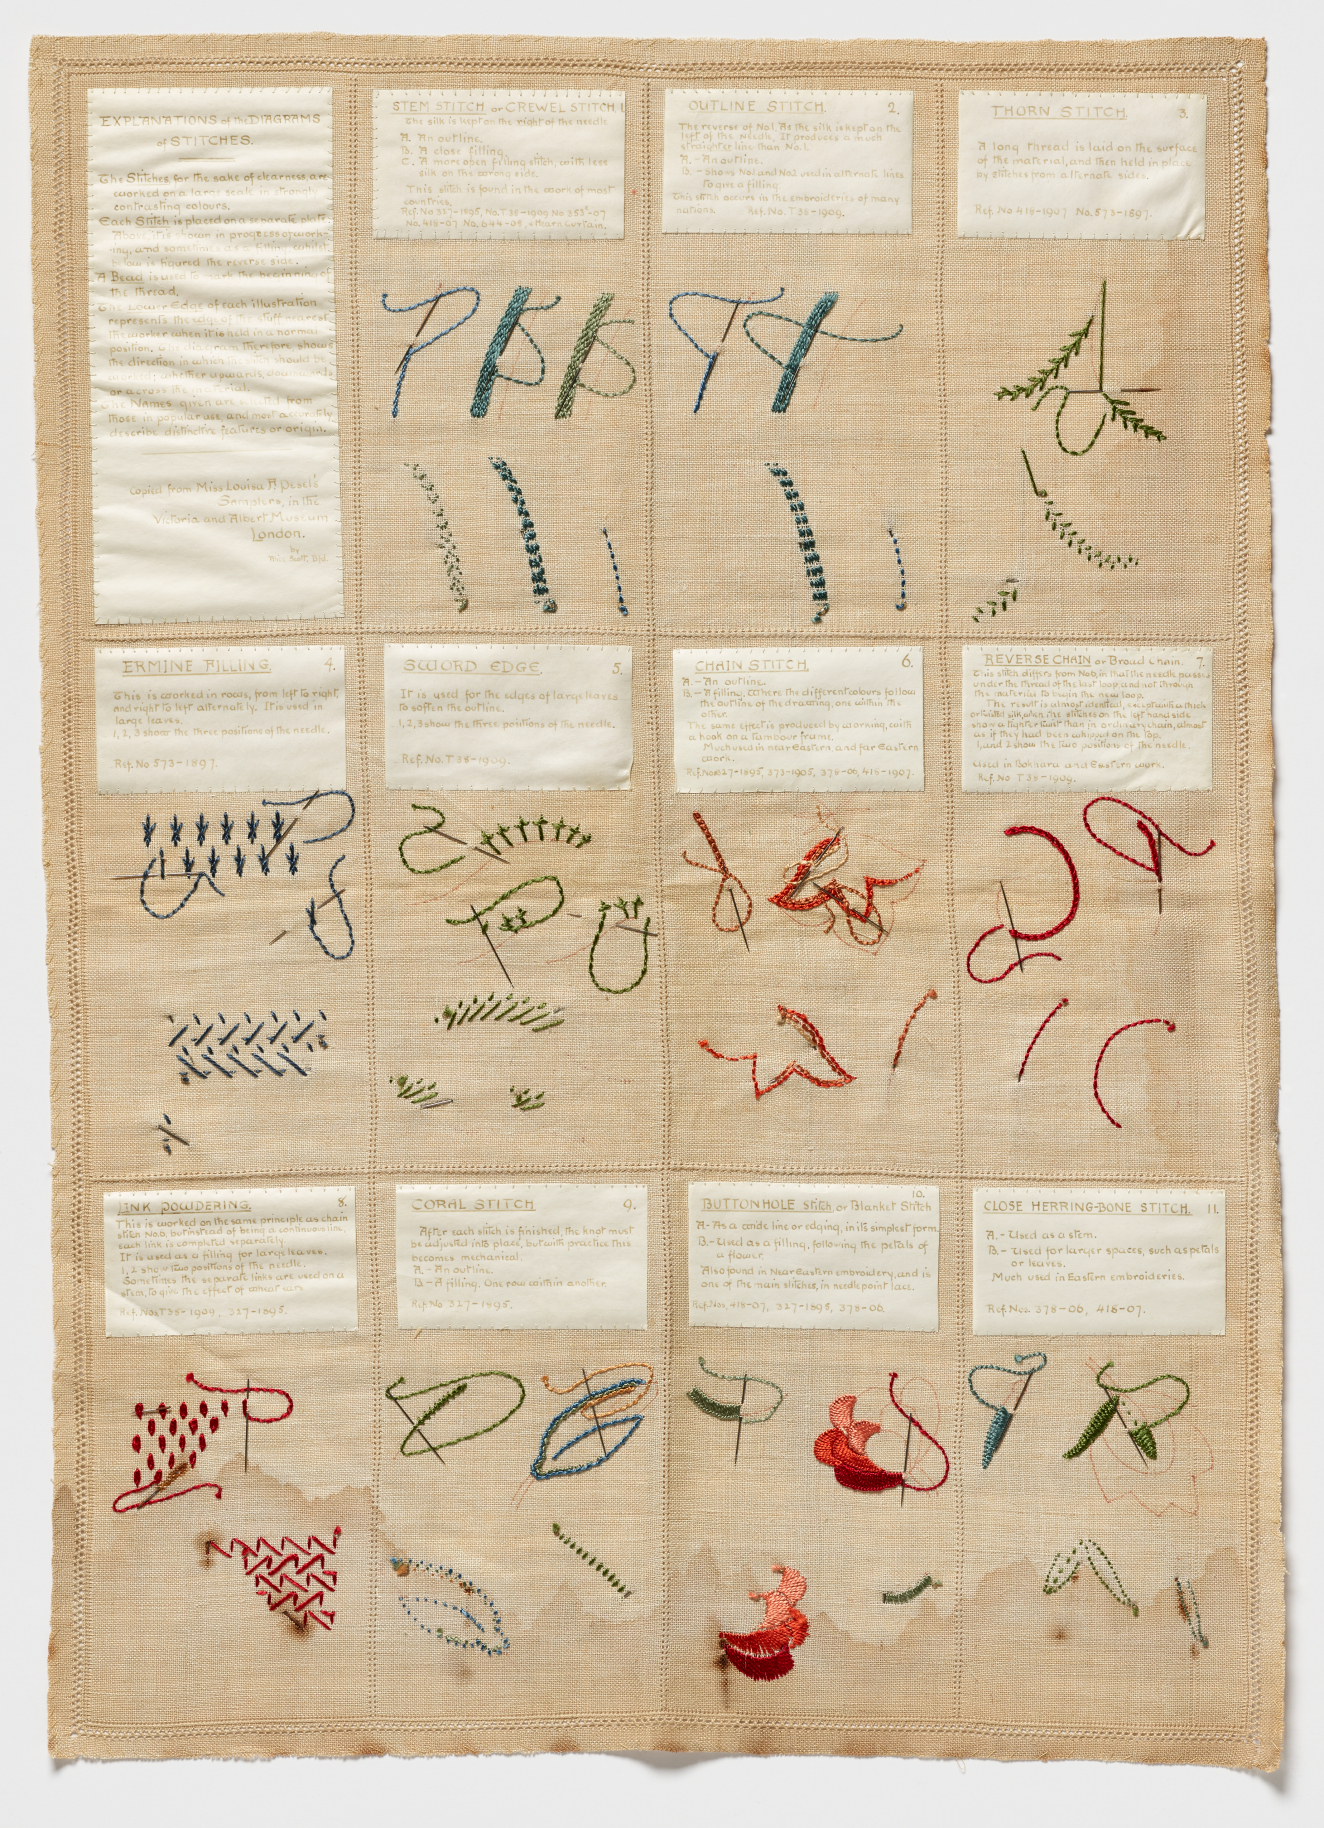 EXPLANATIONS of the DIAGRAMS
of STITCHES.
The Stitches for the sake of clearness are
worked on a large scale in strong,
contrasting colours.
Each Stitch is placed on a separate plate
Above it is shown in progress of work-
ing, and sometimes
below is figured the reverse side.
A Bead is used to mark the beginning of
the thread.
The Lower Edge of each illustration
represents the edge of the stuff nearest
the worker when it is held in a normal
position. therefore shows
the direction in which the should be
worked; whether upwards, downwards
or across the material.
The Names given are from
those in popular use, and most accurately
describe distinctive features or origin.
Copied from Miss Louisa F. Pesel's
Samplers, in the
Victoria and Albert Museum
London.
by
STEM STITCH or CREWEL STITCH 1
The silk is kept on the right of the needle
A. An outline.
B. A close filling.
C. A more open filling stitch, with less
silk on the wrong side.
This stitch is found in the work of most
countries.
Ref. No 327-1895, No. T 38-1909 No 353-07
No. 418-07 No. 644-05,
OUTLINE STITCH 2.
The reverse of No1. As the silk is kept on the
left of the Needle. It produces a much
straighter line than No.1.
A. - An outline.
B. - Shows No1 and No2 used in alternate lines
to give a filling
This stitch occurs in the embroideries of many
nations. Ref. No. T 38-1909.
THORN STITCH. 3.
A long thread is laid on the surface
of the material, and then held in place
by stitches from alternate sides.
Ref. No 418-1907 No. 573-1897.
ERMINE FILLING. 4.
This is worked in rows, from left to right,
and right to left alternately. It is used in
large leaves.
1, 2, 3 show the three positions of the needle.
Ref. No 573-1897.
SWORD EDGE. 5.
It is used for the edges of large leaves
to soften the outline.
1, 2, 3 show the three positions of the needle.
Ref. No. T 38-1909.
CHAIN STITCH. 6.
A. - An outline.
B. - A filling. Where the different colours follow
the outline of the drawing, one within the
other.
The same effect is produced by working, with
a hook on a tambour frame.
Much used in near Eastern and far Eastern
work.
Ref. Nos 327-1895, 373-1905, 378-06, 418-1907.
REVERSE CHAIN or Broad Chain. 7.
This stitch differs from No6, in that the needle passes
under the thread of the last loop and not through
the material to begin the new loop.
The result is almost identical, except with a thick
or twisted silk, when the stitches on the left hand side
show a tighter twist than in ordinary chain, almost
as if they had been whipped on the top.
1, and 2 show the two positions of the needle.
Used in Bokhara and Eastern work.
Ref. No T 38-1909.
LINK POWDERING. 8.
This is worked on the same principle as chain
stitch No.6, but instead of being a continuous line,
each link is completed separately.
It is used as a filling for large leaves.
1, 2 show two positions of the needle.
Sometimes the separate links are used on a
stem, to give the effect of wheat ears
Ref. Nos T 38-1909, 327-1895.
CORAL STITCH 9.
After each stitch is finished, the knot must
be adjusted into place, but with practice this
becomes mechanical.
A. - An outline.
B. - A filling. One row within another.
Ref. No 327-1895.
10.
BUTTONHOLE Stitch or Blanket Stitch
A - As a wide line or edging, in its simplest form.
B. - Used as a filling, following the petals of
a flower.
Also found in Near Eastern embroidery, and is
one of the main stitches, in needlepoint lace.
Ref. Nos, 418-07, 327-1895, 378-06.
CLOSE HERRING-BONE STITCH. 11.
A. - Used as a stem.
B. - Used for larger spaces, such as petals
or leaves.
Much used in Eastern embroideries.
Ref. Nos. 378-06, 418-07.